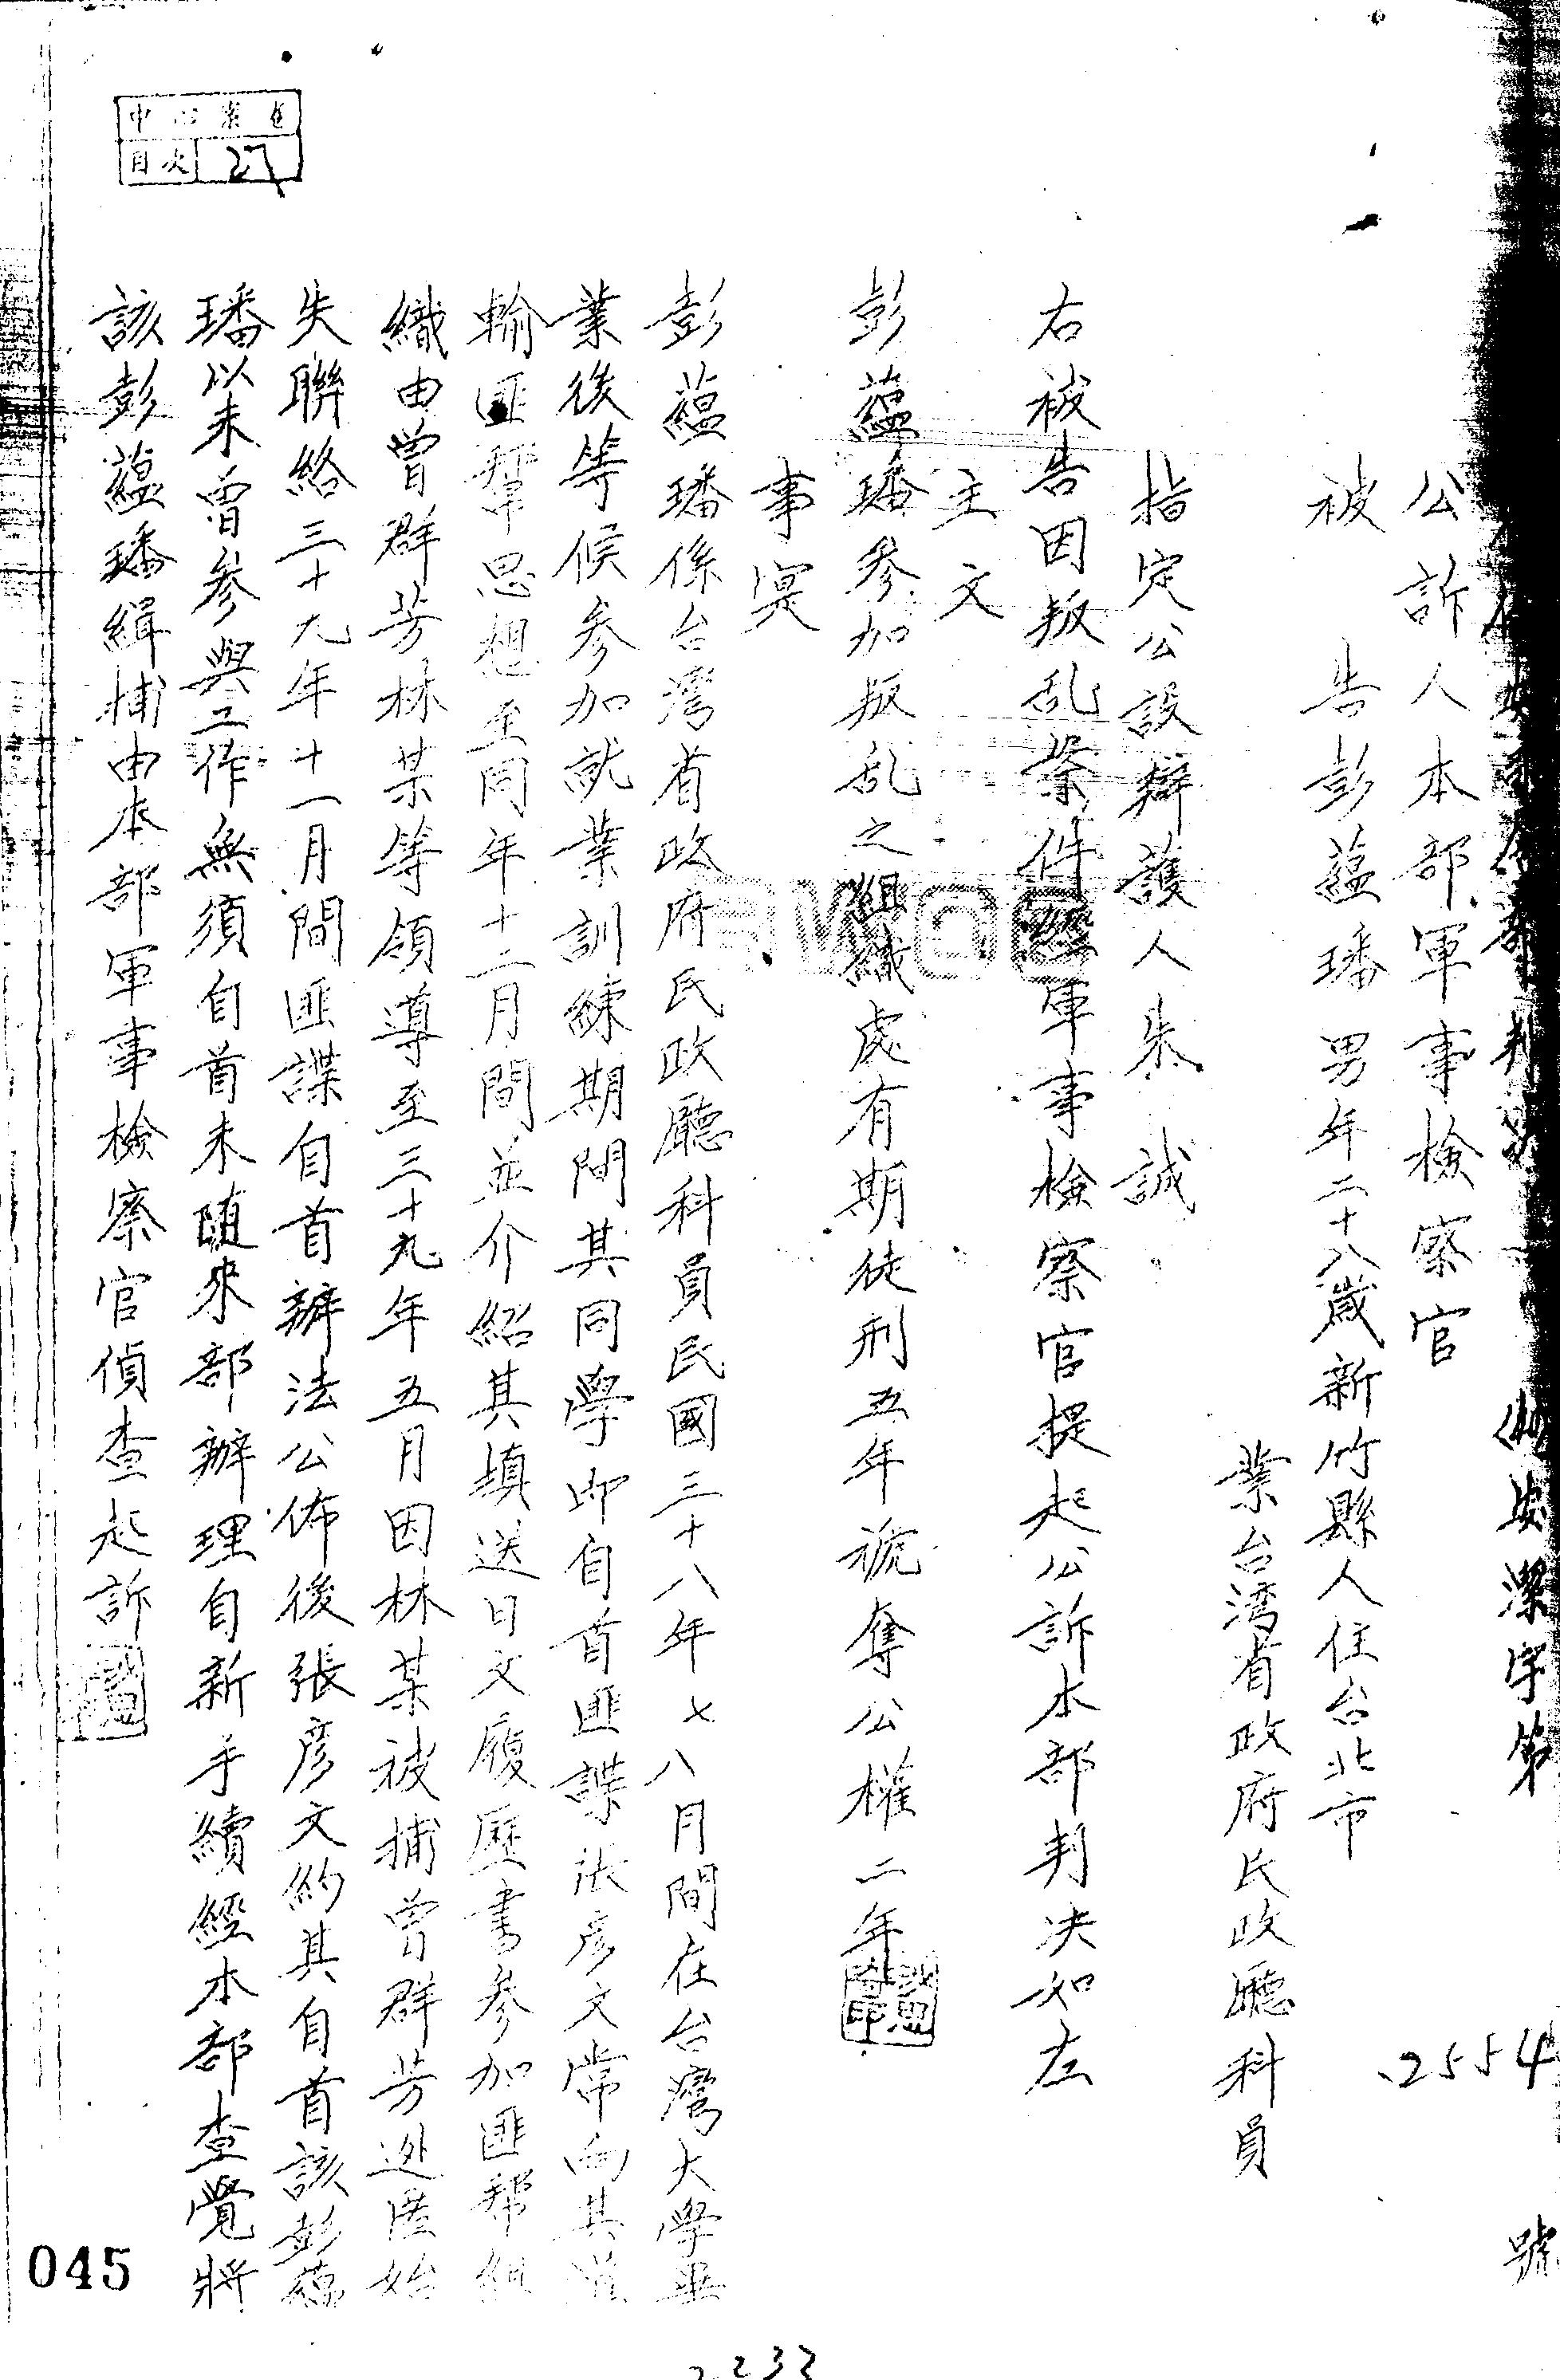 安潔字第
2554
號
公訴人本部軍事檢察官
被告彭蘊璠男年二十八歲新竹縣人住台北市
業台湾省政府民政廳科員
指定公設辯護人朱誠
右被告因叛乱案件經軍事檢察官提起公訴本部判决如左
主文
彭蘊璠參加叛乱之組織處有期徒刑五年褫奪公權二年
事実
彭蘊璠係台灣省政府民政廳科員民國三十八年七八月間在台灣大學畢
業後等候参加就業訓練期間其同學即自首匪諜張彥文常向其灌
輸匪幫思想至同年十二月間並介紹其填送日文履歷書參加匪幫組
織由曾群芳林某等領導至三十九年五月因林某被捕曾群芳逃匿始
失聯絡三十九年十一月間匪諜自首辦法公佈後張彥文約其自首該彭蘊
璠以未曾參與工作無須自首未随來部辦理自新手續經本部查覺將
該彭蘊璠緝捕由本部軍事檢察官偵查起訴
中心案卷
目次 27
045
2232